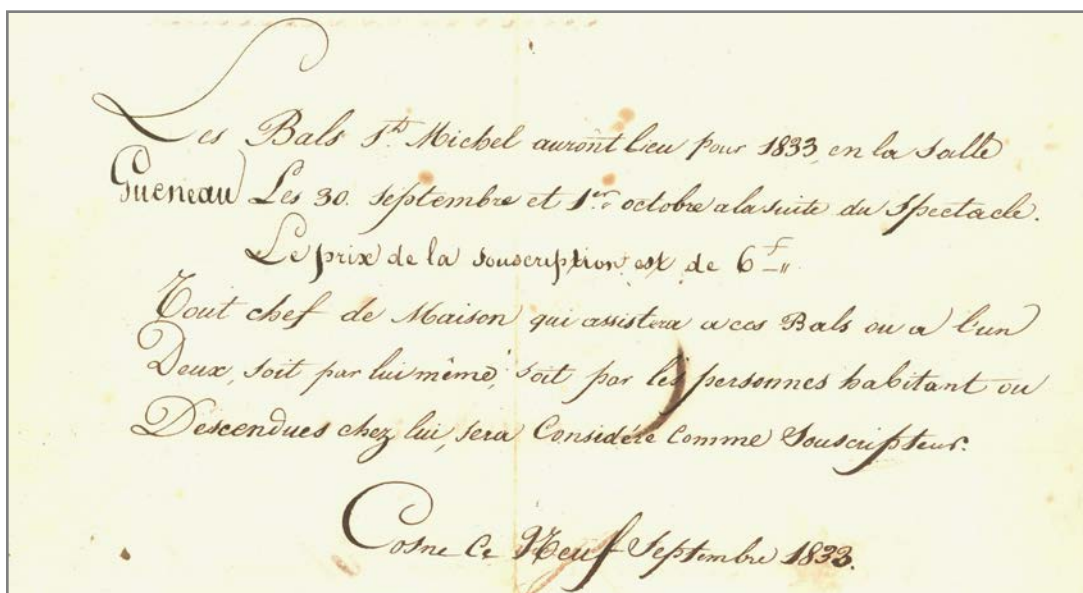 Les Bals St. Michel auront lieu pour 1833, en la salle
Gueneau Les 30. septembre et 1er. octobre a la suite du Spectacle.
Le prix de la souscription est de 6 f "
Tout chef de Maison qui assistera a ces Bals ou a l'un
Deux, soit par lui même, soit par les personnes habitant ou
Descendues chez lui, sera Considéré Comme Souscripteur.
Cosne Ce Neuf Septembre 1833.